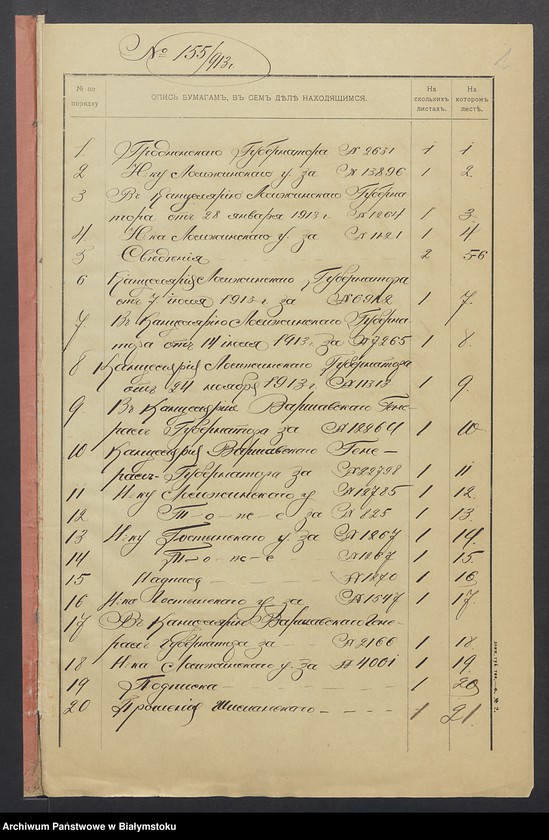 № 155/913 г.
1
№ по порядку
ОПИСЬ БУМАГАМЪ, ВЪ СЕМЪ ДѢЛѢ НАХОДЯЩИМСЯ.
На сколькихъ листахъ.
На которомъ листѣ.
1 Гродненскаго Губернатора № 2631 1 1
2 Н-ку Ломжинскаго у. за № 13896 1 2
3 Въ Канцелярію Ломжинскаго Губерна
тора отъ 28 января 1913 г. № 1264 1 3
4 Н-ка Ломжинскаго у. за № 1121 1 4
5 Свѣдѣнія 2 5-6
6 Канцелярія Ломжинскаго Губернатора
отъ 7 іюля 1913 г. за 1 7.
7 Въ Канцелярію Ломжинскаго Губерна-
тора отъ 14 іюля 1913 г. за № 7265 1 8.
8 Канцелярія Ломжинскаго Губернатора
отъ 24 ноября 1913 г. № 11318 1 9.
9 Въ Канцелярію Варшавскаго Гене-
ралъ Губернатора за № 12264 1 10
10 Канцелярія Варшавскаго Гене-
ралъ-Губернатора за № 22728 1 11
11 Н-ку у. № 12785 1 12.
12 Т-о-ж-е за № 825 1 13.
13 Н-ку Гостынскаго у. за № 1267 1 14.
14 Т-о-ж-е № 1267 1 15.
15 Надпись № 1270 1 16
16 Н-ка Гостынскаго у. за № 1547 1 17.
17 Въ Канцелярію Варшавскаго Гене-
ралъ Губернатора за № 2166 1 18.
18 Н-ка Ломжинскаго у. за № 4001 1 19.
19 Подписка 1 20
20 Прошенія 1 21.
Archiwum Państwowe w Białymstoku